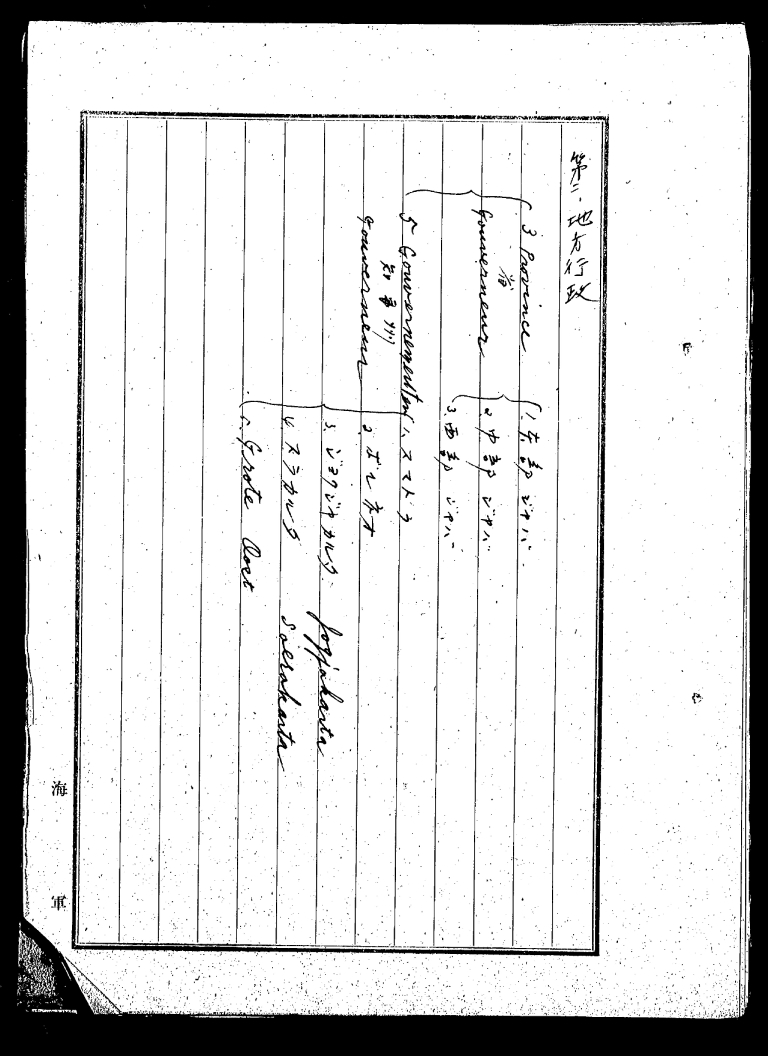 第二. 地方行政
3 Province
省
Gouverneur
1. 東部ジャバ
2. 中部ジャバ
3. 西部ジャバ
5 Gouvernementen
知事州
Gouverneur
1. スマトラ
2. ボルネオ
3. ジョクジャカルタ Jogjakarta
4. スラカルタ Soerakarta
5. Groote Oost
海軍